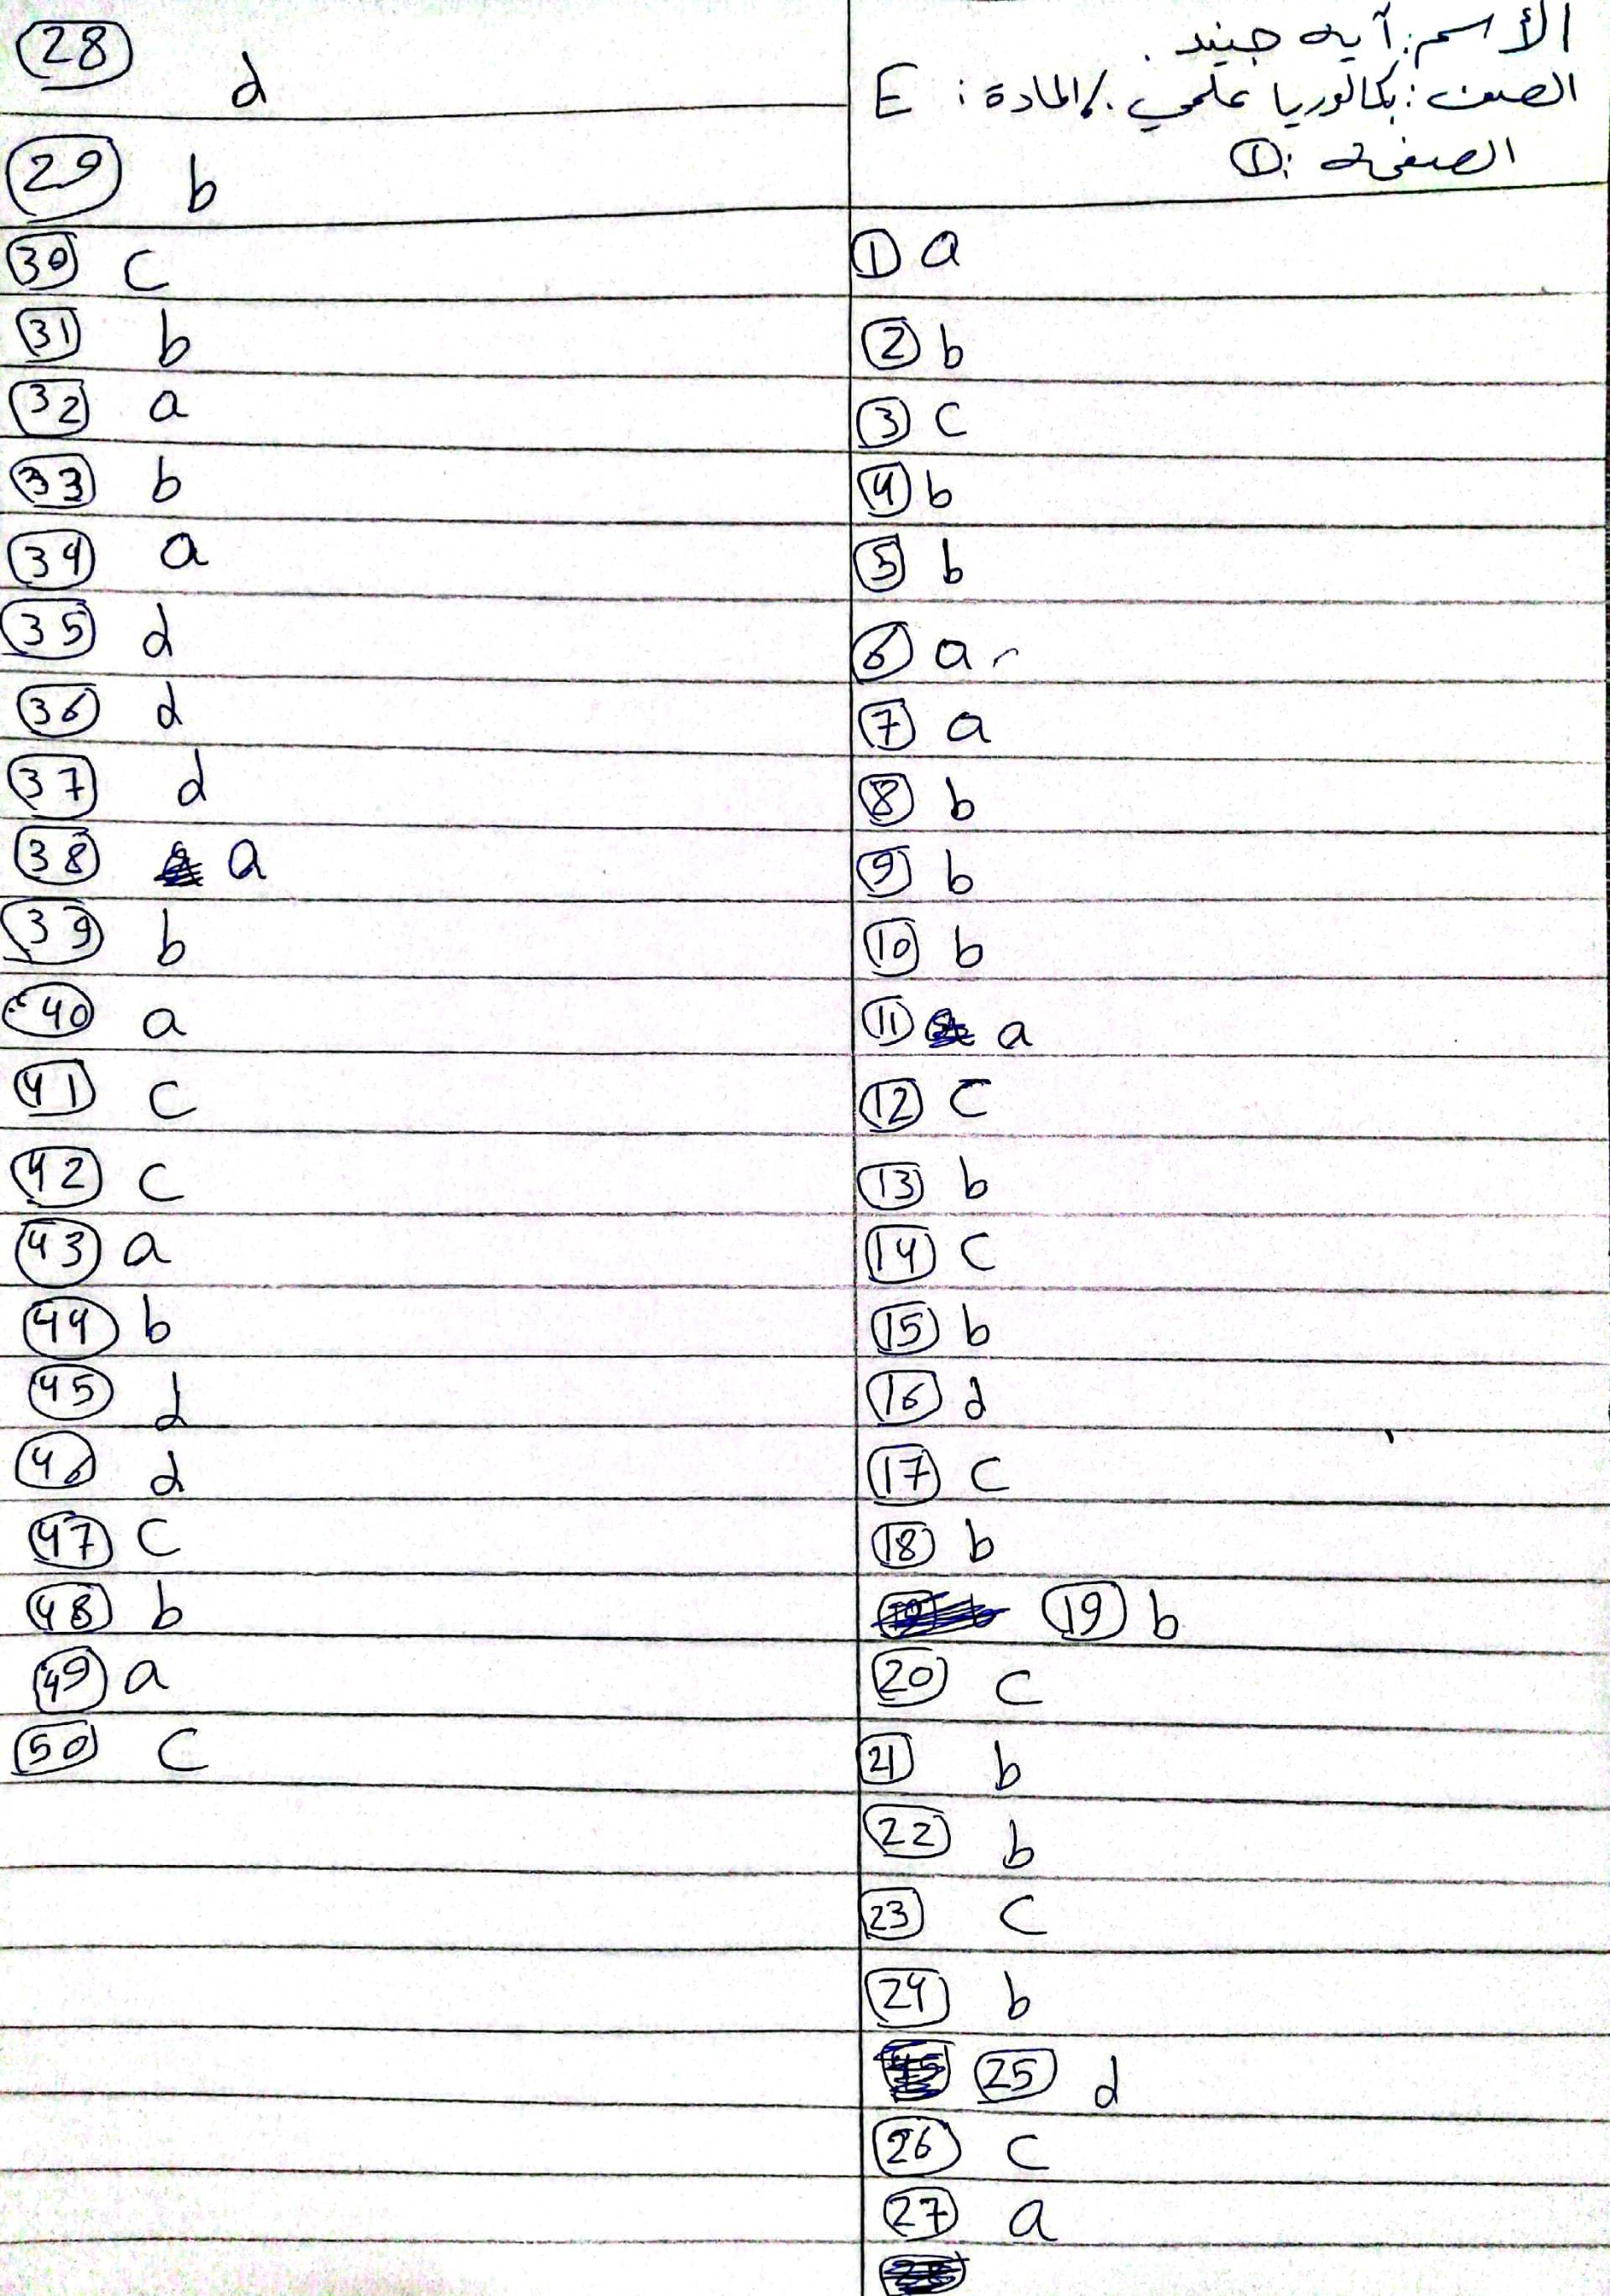 الأسم: آية جنيد.
الصف: بكالوريا علمي. / المادة: E
الصفحة: 1
1 a
2 b
3 c
4 b
5 b
6 a
7 a
8 b
9 b
10 b
11 a
12 c
13 b
14 c
15 b
16 d
17 c
18 b
19 b
20 c
21 b
22 b
23 c
24 b
25 d
26 c
27 a
28 d
29 b
30 c
31 b
32 a
33 b
34 a
35 d
36 d
37 d
38 a
39 b
40 a
41 c
42 c
43 a
44 b
45 d
46 d
47 c
48 b
49 a
50 c